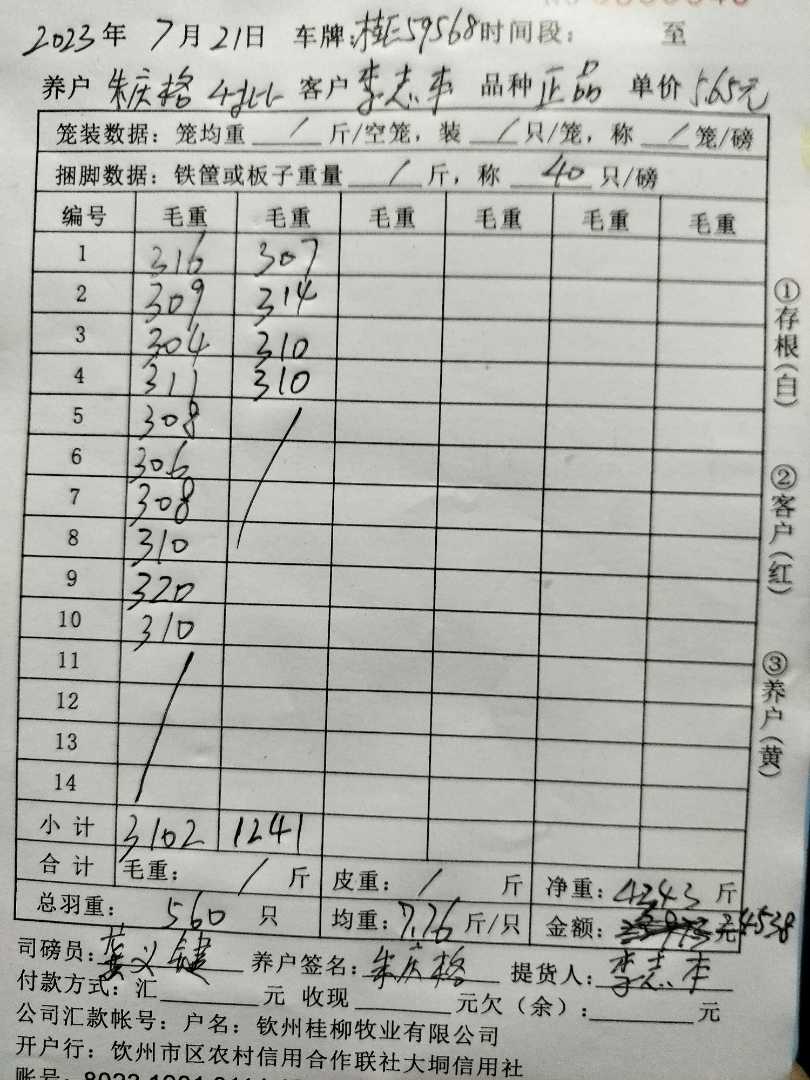 2023年 7月21日 车牌:桂E59568时间段: 至
养户 朱庆格 4批 客户 李志丰 品种 正品 单价 5.65元
笼装数据: 笼均重 / 斤/空笼, 装 / 只/笼, 称 / 笼/磅
捆脚数据: 铁筐或板子重量 / 斤, 称 40 只/磅
编号 毛重 毛重 毛重 毛重 毛重 毛重
1 316 307
2 309 314
3 304 310
4 311 310
5 308 /
6 306
7 308
8 310
9 320
10 310
11 /
12
13
14
小计 3102 1241
合计 毛重: / 斤 皮重: / 斤 净重: 4343 斤
总羽重: 560 只 均重: 7.76 斤/只 金额: 元 24538
司磅员: 养户签名: 朱庆格 提货人: 李志丰
付款方式: 汇 元 收现 元欠(余): 元
公司汇款帐号: 户名: 钦州桂柳牧业有限公司
开户行: 钦州市区农村信用合作联社大垌信用社
账号:
①存根(白) ②客户(红) ③养户(黄)